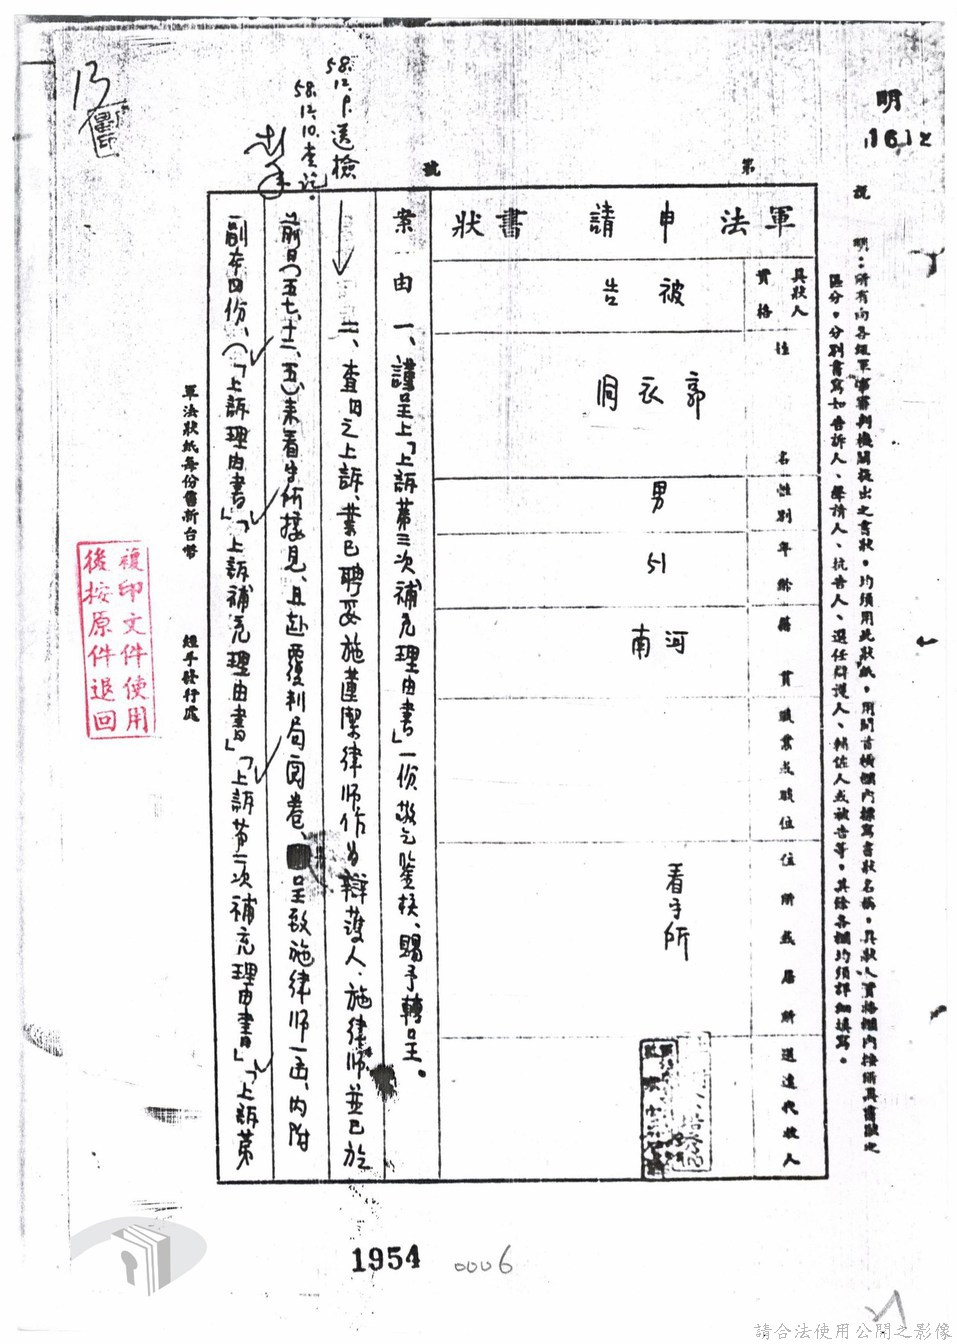 明
1612
第
號
說
明：所有向各級軍事審判機關提出之書狀，均須用此狀紙，用開首橫欄內標寫書狀名稱，具狀人資格欄內按稱具書狀之
區分，分別書寫如告訴人、聲請人、抗告人、選任辯護人、輔佐人或被告等，其餘各欄均須詳細填寫。
軍法申請書狀
具狀人
資格
被告
姓名
郭衣洞
性別
男
年齡
51
籍貫
河南
職業或職位
住所或居所
看守所
送達代收人
案由
一、謹呈上「上訴第三次補充理由書」一份敬乞鑒核、賜予轉呈。
二、查因之上訴、業已聘妥施謹潔律师作为辯護人．施律师並已於
前日（五七、十二、五）来看守所接見、且赴覆判局阅卷、呈致施律师一函、内附
副本四份、（「上訴理由書」「上訴補充理由書」「上訴第二次補充理由書」、「上訴第
58.12.9.送檢
58.12.10.查訖.
13
軍法狀紙每份售新台幣
經手發行處
複印文件使用
後按原件退回
1954
0006
請合法使用公開之影像